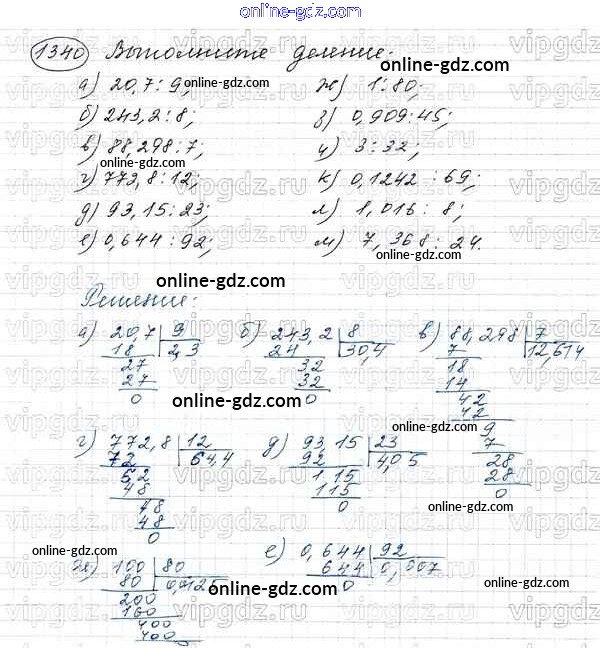 online-gdz.com
1340 Выполните деление:
а) 20,7 : 9; ж) 1 : 80;
б) 243,2 : 8; з) 0,909 : 45;
в) 88,298 : 7; и) 3 : 32;
г) 772,8 : 12; к) 0,1242 : 69;
д) 93,15 : 23; л) 1,016 : 8;
е) 0,644 : 92; м) 7,368 : 24.
Решение:
а) 20,7 9 б) 243,2 8 в) 88,298 7
18 2,3 24 30,4 7 12,614
27 32 18
27 32 14
0 0 42
42
9
7
28
28
0
г) 772,8 12 д) 93,15 23
72 64,4 92 4,05
52 1,15
48 115
48 0
48
0
ж) 100 80 е) 0,644 92
80 0,0125 644 0,007
200 0
160
400
400
online-gdz.com
online-gdz.com
online-gdz.com
online-gdz.com
online-gdz.com
online-gdz.com
online-gdz.com
online-gdz.com
online-gdz.com
online-gdz.com